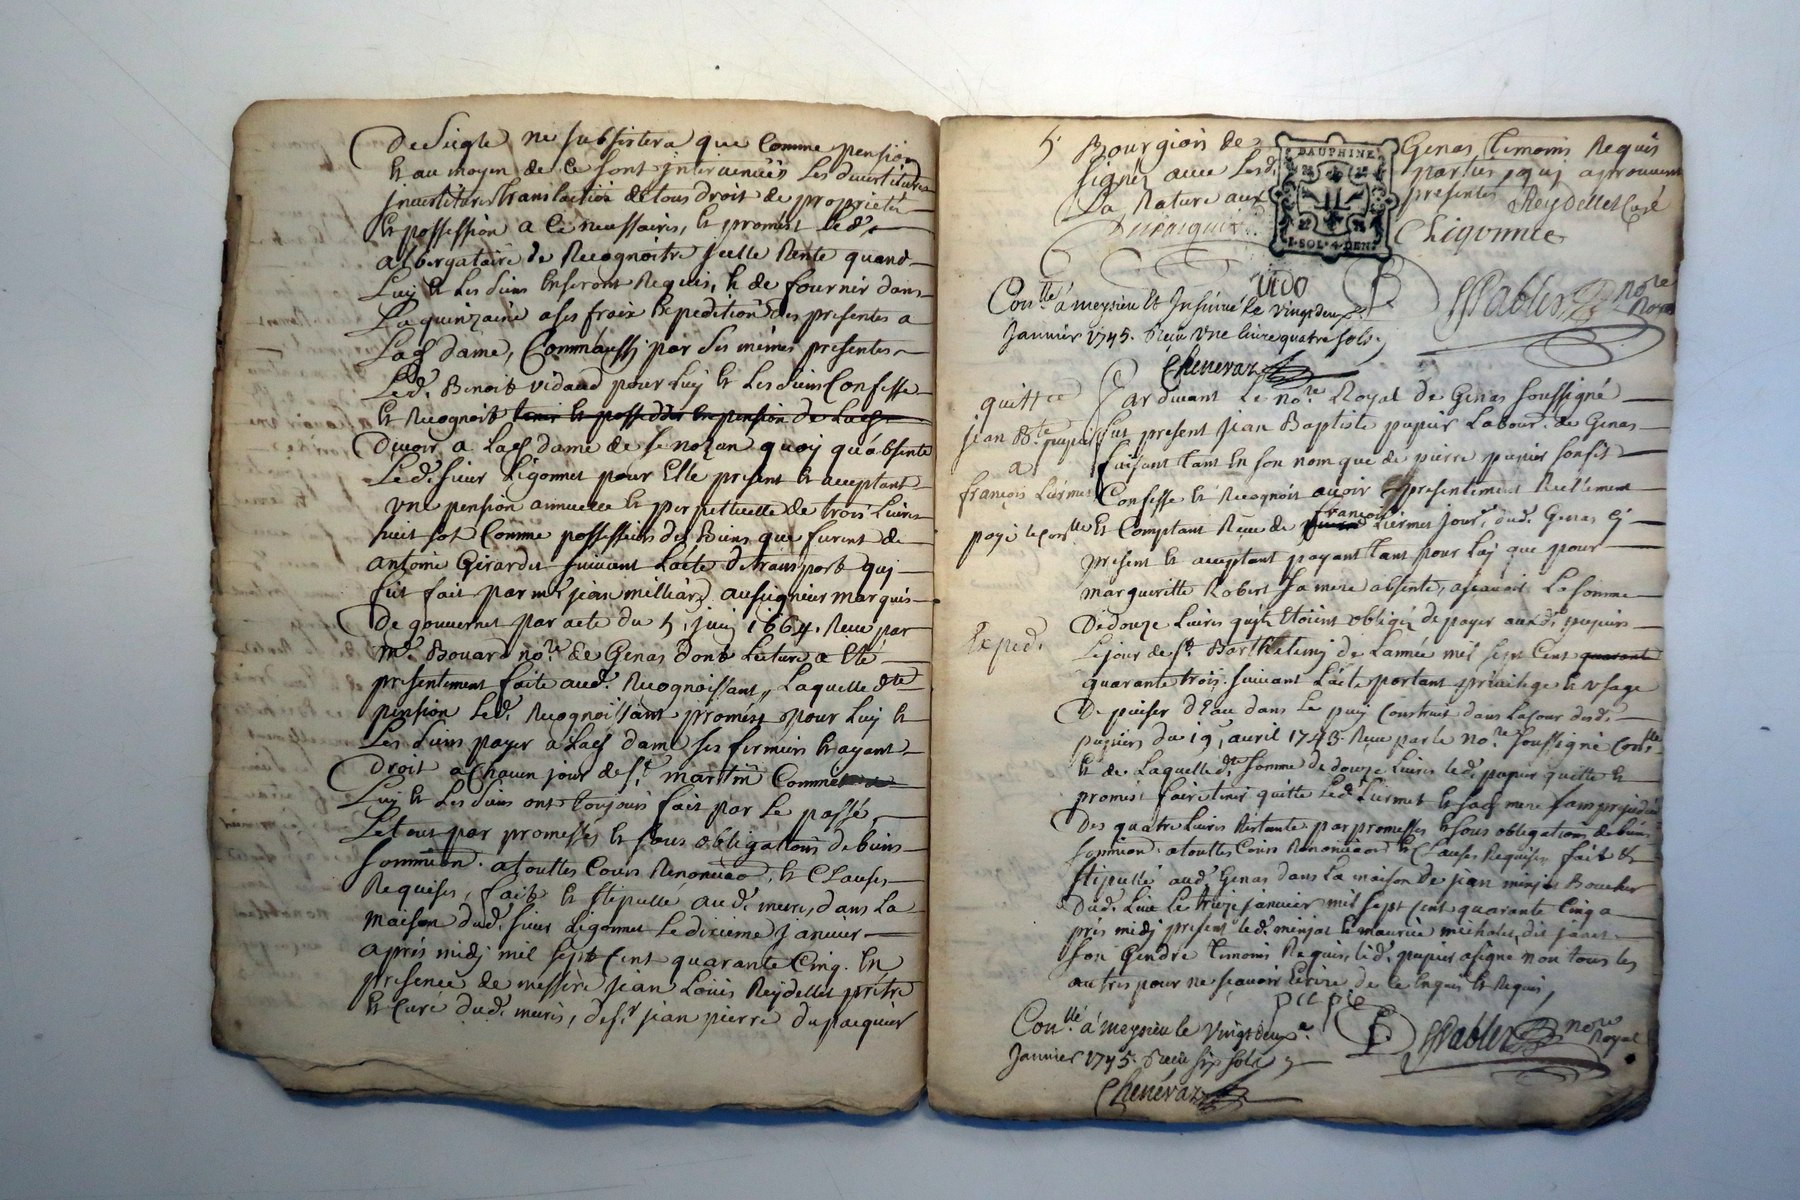 de Siegle ne subsistera que Comme pension
Et au moyen de ce sont intervenües Les devestitures
investitures translation de tous droit de proprieté
Et possession a ce neussaires, Et promest Led.
albergataire de Recognoitre jcelle Rente quand
Luy Et Les siens Enseront Requis, Et de fournir dans
La quinzaine a ses fraix Expedition des presentes a
Lad. dame, Commaussy par Les mêmes presentes
Led. Benoit vidaud pour Luy Et Les siens Confesse
Et Recognoit tenir Et posseder En pension de Lad.
devoir a Lad. dame de Senozan quoy qu'absente
Led. sieur Ligonnet pour Elle present Et acceptant
une pension annuelle Et perpetuelle de trois Livres
huit sol Comme possesseur des Biens que furent de
antoine Girardet suivant L'acte de transport quj
fut fait par mr. jean milliard au seigneur marquis
De gouvernet par acte du 5. juin 1664. Receu par
me. Bouard nore. de Genas dont Lecture a Eté
presentement faite aud. Recognoissant, Laquelle dte
pension Led. Recognoissant promest pour Luy Et
Les siens payer a Lad. dame ses fermiers Et ayant
Droit a Chacun jour de St. martin Comme
Luy Et Les siens ont toujours fait par Le passé,
Le tout par promesses Et sous obligations de biens
Soumission. atouttes Cours Renonciaõ, Et Clauses
Requises, fait Et stipulle aud. meins, dans La
maison dud. sieur Ligonnet Le dixieme janvier
aprés midj mil sept Cent quarante Cinq. En
presence de messire jean Louis Reydellet pretre
Et Curé dud. meins, de Sr. jean pierre dupacquier
5. Bourgiois de Genas temoins Requis
signés avec Lesd. parties, quj aprouvent
La Rature aux presentes Reydellet Curé
Dupacquier Chigonnée
DAUPHINE
I·SOL·4·DENI
vido
P
Pablet nore Royal
Conllé á meysieu Et Insinué Le Vingt deux
Janvier 1745. Receu une livre quatre sols.
Chenevaz
quittce
jean Bte. pupier
a
françois Liermet
payé le conlle
Exped.
Pardevant Le nore. Royal de Genas soussigné
fut present jean Baptiste pupier Labour. de Genas
faisant tant En son nom que de pierre pupier son fils
Confesse Et Recognoit avoir presentement Reelement
Et Comptant Receu de françois Liermet jour. dud. Genas ij
present Et acceptant payant tant pour Luj que pour
margueritte Robert Sa mere absente, ascavoir La somme
De douze Livres qu'ils Etoient obligés de payer aud. pupiers
Le jour de St. Barthelemy de L'année mil sept Cent quarante
quarante trois. suivant L'acte portant privilege Et usage
De puiser d'Eau dans Le puy Construit dans La Cour desd.
pupiers du 19. avril 1743. Receu par le nore. soussigné Conlle
Et de Laquelle dte somme de douze Livres Led. pupier quitte Et
promest faire tenir quitte Led. Liermet Et sad. mere sans prejudice
Des quatre Livres Restante par promesses Et sous obligations de biens
soumission. atouttes Cours Renonciaõn Et Clauses Requises, fait Et
stipullé aud. Genas dans La maison de jean minjat Boucher
Dud. Lieu Le treize janvier mil sept Cent quarante Cinq a
prés midj present Led. minjat Et maurice michalet dit janet
son Gendre temoins Requis, Led. pupier a signé non tous les
autres pour ne sçavoir Ecrire de ce Enquis Et Requis,
pupie
P
Pablet nore Royal
Conllé. á meysieu le Vingt deux
Janvier 1745. Receu six sols
Chenévaz